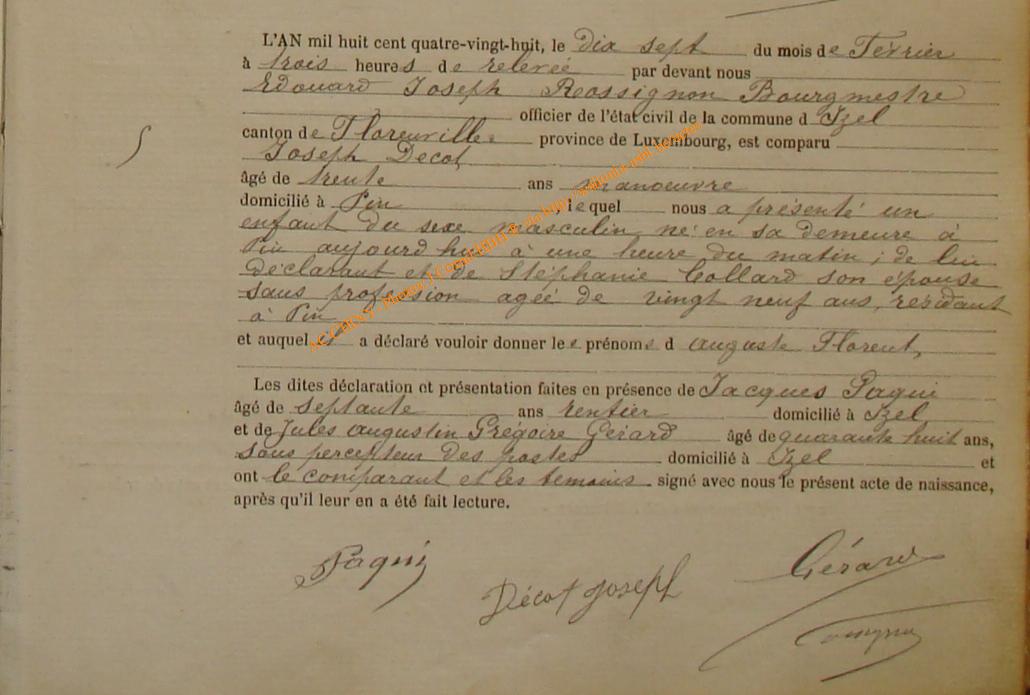 L'AN mil huit cent quatre-vingt-huit, le dix sept du mois de Février
à trois heures de relevée par devant nous
Edouard Joseph Rossignon Bourgmestre
officier de l'état civil de la commune d Izel
canton de Florenville province de Luxembourg, est comparu
Joseph Decot
âgé de trente ans manoeuvre
domicilié à Pin, lequel nous a présenté un
enfant du sexe masculin né en sa demeure à
Pin aujourd'hui à une heure du matin, de lui
déclarant et de Stéphanie Collard son épouse
sans profession agée de vingt neuf ans, résidant
à Pin
et auquel il a déclaré vouloir donner les prénoms d auguste Florent,
Les dites déclaration et présentation faites en présence de Jacques Paqui
âgé de septante ans rentier domicilié à Izel
et de Jules augustin Grégoire Gérard âgé de quarante huit ans,
Sous percepteur des postes domicilié à Izel et
ont le comparant et les temoins signé avec nous le présent acte de naissance,
après qu'il leur en a été fait lecture.
Paqui
Décot Joseph
Gérard